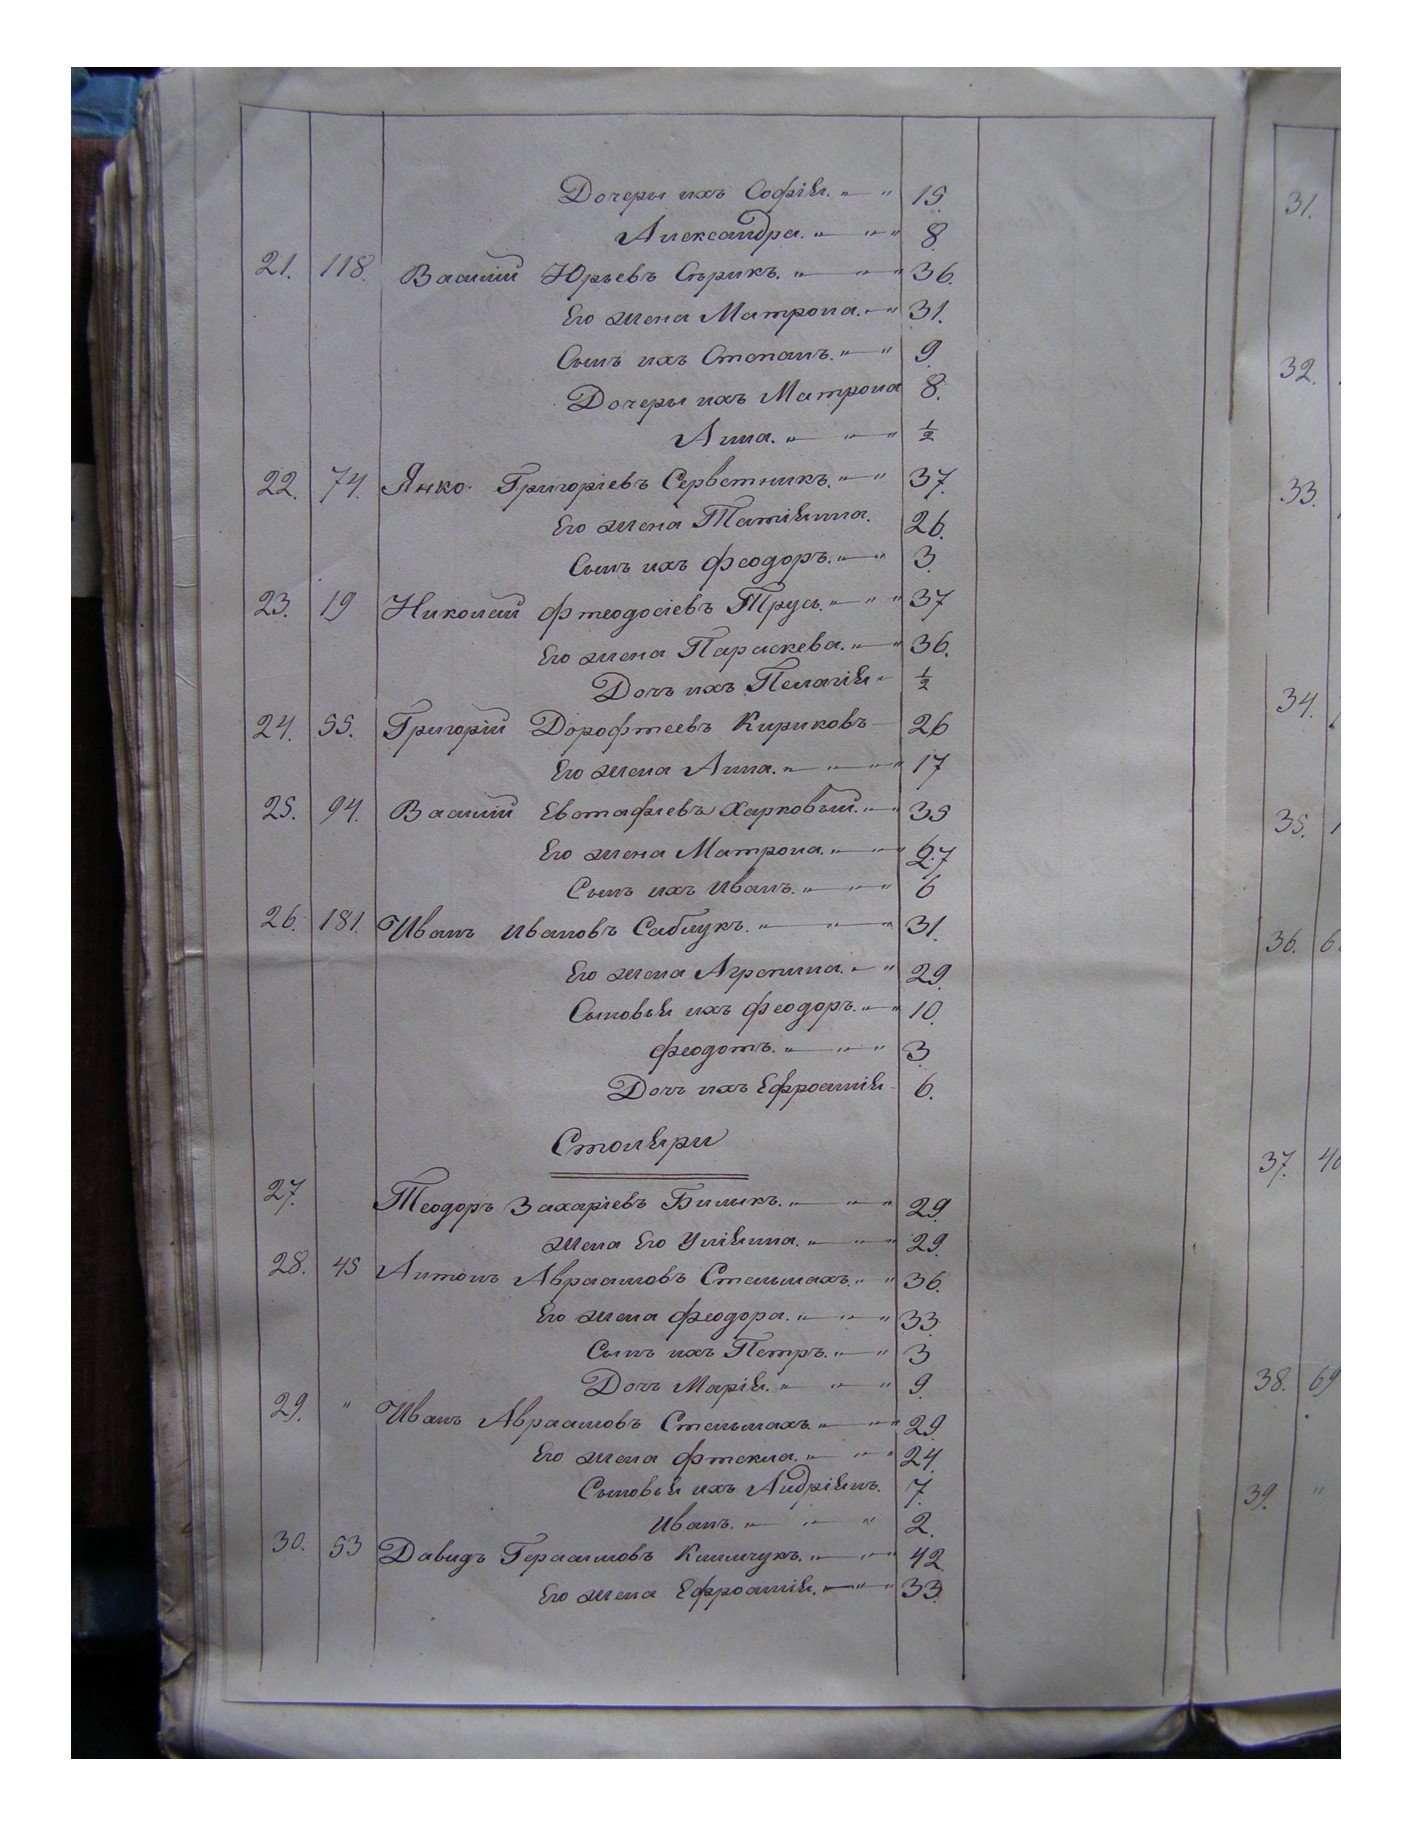 Дочеры ихъ Софія. " — " 15
Александра. " — " — " 8
21. 118. Василій Юрьевъ Сѣрикъ. " — " — " 36.
Его жена Матрона. " — " 31.
Сынъ ихъ Стопанъ. " — " 9
Дочеры ихъ Матрона 8.
Анна. " — " — " ½
22. 74. Янко Григоріевъ Серветникъ. " — " 37.
Его жена Татіянна. 26.
Сынъ ихъ Феодоръ. " — " 3.
23. 19 Николай Фтеодосіевъ Трусъ. " — " " 37
Его жена Параскева. " — " 36.
Дочь ихъ Пелагія - ½
24. 55. Григорій Дорофтеевъ Кириковъ — 26
Его жена Анна. " — " — " 17
25. 94. Василій Евстафіевъ Харковый. " — " 35
Его жена Матрона. " — " — " 27
Сынъ ихъ Иванъ. " — " — " 6
26. 181. Иванъ Ивановъ Саблукъ. " — " — " 31.
Его жена Агрепина. " — " 29.
Сыновья ихъ Феодоръ. " — " 10.
Феодотъ. " — " — " 3.
Дочь ихъ Ефросинія - 6.
Столяри
27. Теодоръ Захаріевъ Билыкъ. " — " — " 29.
Жена Его Уліянна. " — " — " 29.
28. 45 Антонъ Авраамовъ Стельмахъ. " — " 36.
Его жена Феодора. " — " — " 33.
Сынъ ихъ Петръ. " — " 3
Дочь Марія. " — " — " 9.
29. " Иванъ Авраамовъ Стельмахъ. " — " — " 29.
Его жена Фтекла. " — " — " 24.
Сыновья ихъ Андріянъ. 7.
Иванъ. " — " — " 2.
30. 53 Давидъ Герасимовъ Климчукъ. " — " — " 42
Его жена Ефросинія. " — " — " 33.
31.
32.
33.
34.
35.
36.
37.
38. 69
39. "